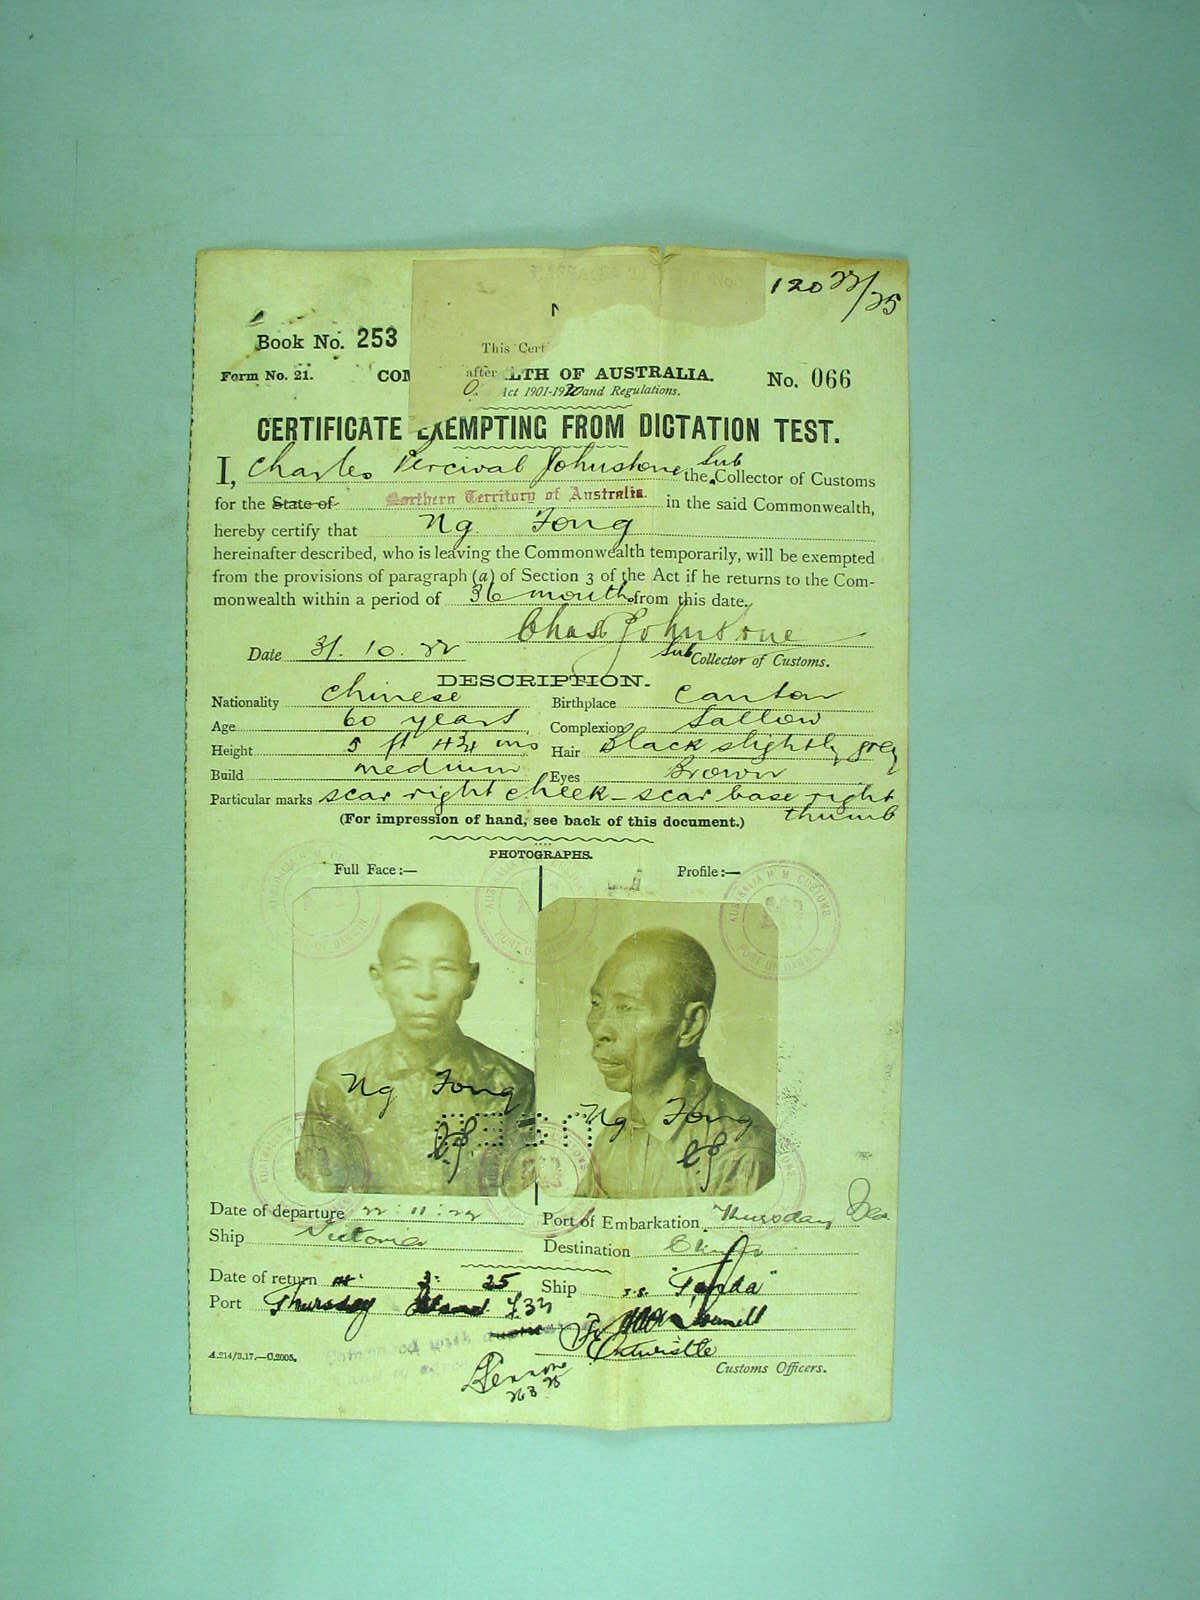 120 22/25
Book No. 253
This Cert
Form No. 21. COM after LTH OF AUSTRALIA. No. 066
Act 1901-1920 and Regulations.
CERTIFICATE EXEMPTING FROM DICTATION TEST.
I, Charles Percival Johnstone, the Sub Collector of Customs
for the State of Northern Territory of Australia. in the said Commonwealth,
hereby certify that Ng Fong
hereinafter described, who is leaving the Commonwealth temporarily, will be exempted
from the provisions of paragraph (a) of Section 3 of the Act if he returns to the Com-
monwealth within a period of 36 months from this date.
Chas P Johnstone
Date 31. 10. 22 Sub Collector of Customs.
DESCRIPTION.
Nationality Chinese Birthplace Canton
Age 60 years Complexion Sallow
Height 5 ft 4¾ ins Hair Black slightly grey
Build medium Eyes Brown
Particular marks scar right cheek - scar base right thumb
(For impression of hand, see back of this document.)
PHOTOGRAPHS.
Full Face:— Profile:—
Ng Fong Ng Fong
Date of departure 22:11:22 Port of Embarkation Thursday
Ship Victoria Destination China
Date of return 3: 25 Ship s.s. "Tanda"
Port Thursday Island
Entwistle
A.214/3.17.—C.2005. Customs Officers.